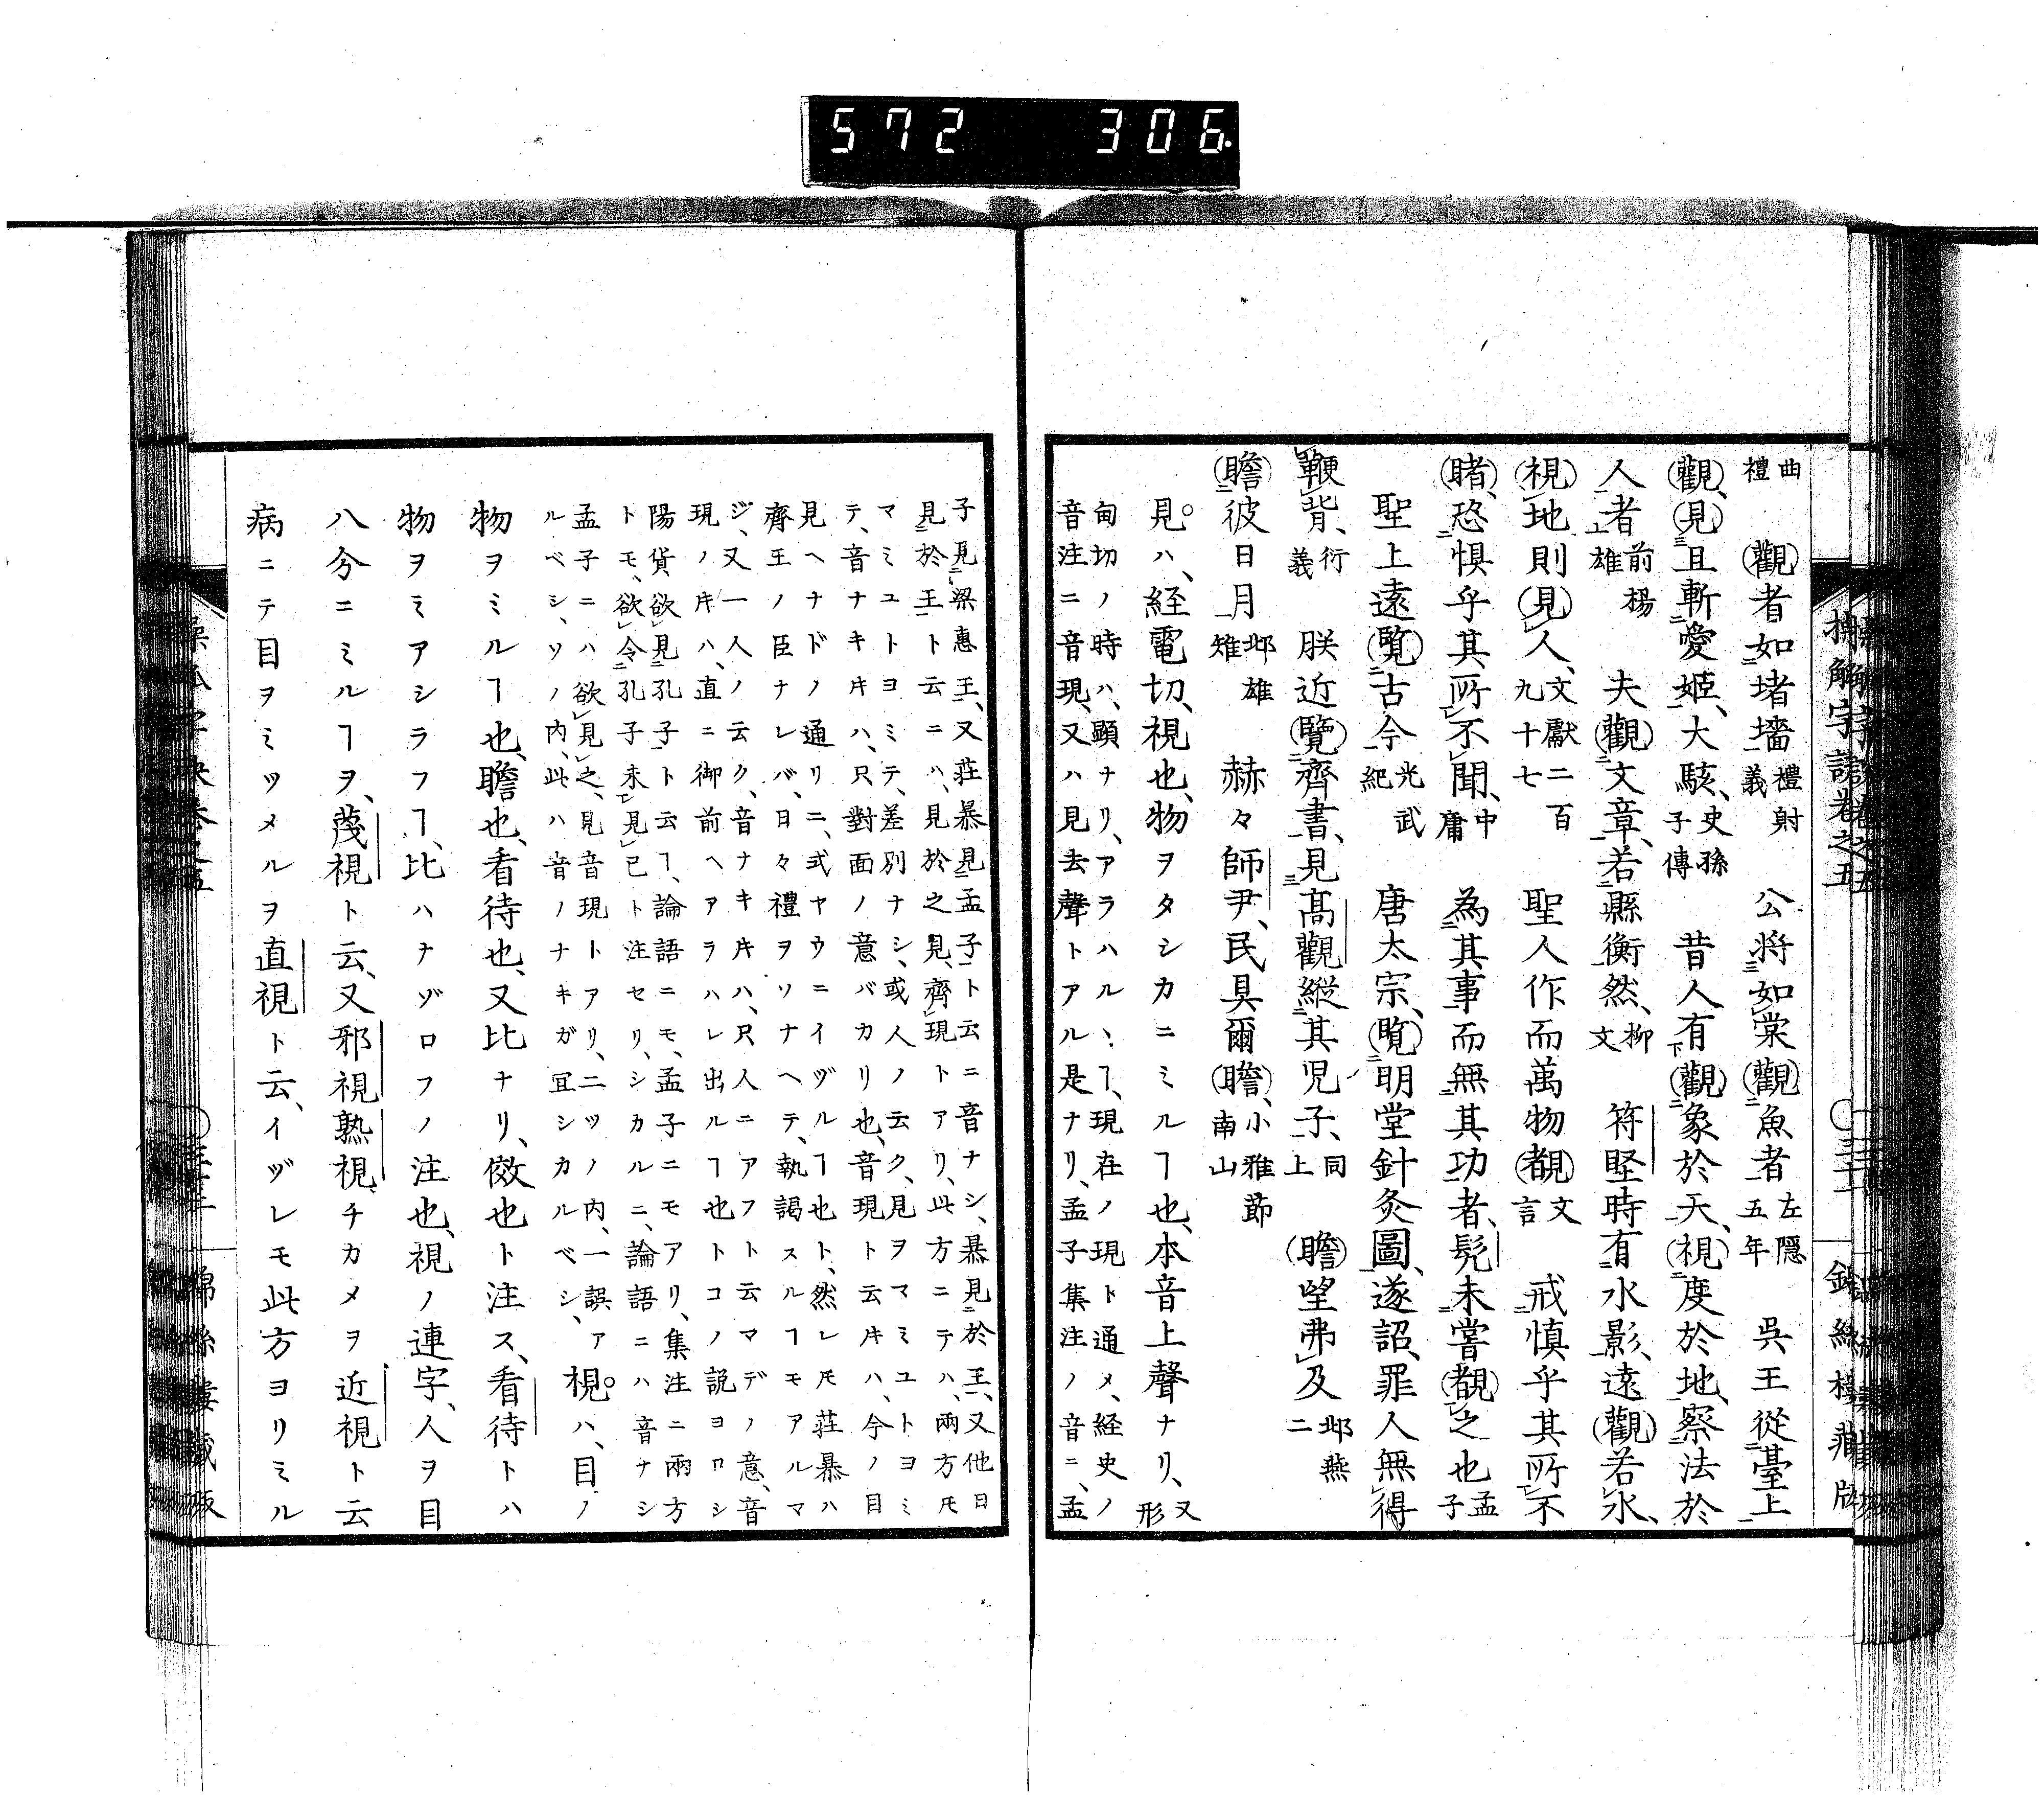 572 306
曲禮 觀者如堵墻禮射義 公將如棠觀魚者左隱五年 呉王從臺上
觀、見且斬愛姬、大駭、史孫子傳 昔人有觀象於天、視度於地、察法於
人者前楊雄 夫觀文章、若縣衡然、柳文 符堅時有水影、遠觀若水、
視地則見人、文獻二百九十七 聖人作而萬物覩文言 戒愼乎其所不
睹、恐惧乎其所不聞、中庸 為其事而無其功者、髡未嘗覩之也孟子
聖上遠覧古今光武紀 唐太宗、覧明堂針灸圖、遂詔、罪人無得
鞭背、衍義 朕近覽齊書、見高觀縱其児子、同上 瞻望弗及邶燕二
瞻彼日月邶雄雉 赫々師尹、民具爾瞻、小雅節南山
見。ハ、経電切、視也、物ヲタシカニミルヿ也、本音上聲ナリ、又形
甸切ノ時ハ、顯ナリ、アラハルヽヿ、現在ノ現ト通メ、経史ノ
音注ニ音現、又ハ見去聲トアル是ナリ、孟子集注ノ音ニ、孟
子見梁惠王、又荘暴見孟子ト云ニ音ナシ、暴見於王、又他日
見於王ト云ニハ、見於之見、齊現トアリ、此方ニテハ、兩方トモ
マミユトヨミテ、差別ナシ、或人ノ云ク、見ヲマミユトヨミ
テ、音ナキトキハ、只對面ノ意バカリ也、音現ト云トキハ、今ノ目
見ヘナドノ通リニ、式ヤウニイヅルヿ也ト、然レトモ荘暴ハ
齊王ノ臣ナレバ、日々禮ヲソナヘテ、執謁スルヿモアルマ
ジ、又一人ノ云ク、音ナキトキハ、只人ニアフト云マデノ意、音
現ノトキハ、直ニ御前ヘアラハレ出ルヿ也トコノ説ヨロシ
陽貨欲見孔子ト云ヿ、論語ニモ、孟子ニモアリ、集注ニ兩方
トモ、欲令孔子来見已ト注セリ、シカルニ、論語ニハ音ナシ
孟子ニハ欲見之、見音現トアリ、二ツノ内、一誤ア
ルベシ、ソノ内、此ハ音ノナキガ冝シカルベシ、 視。ハ、目ノ
物ヲミルヿ也、瞻也、看待也、又比ナリ、傚也ト注ス、看待トハ
物ヲミアシラフヿ、比ハナゾロフノ注也、視ノ連字、人ヲ目
八分ニミルヿヲ、蔑視ト云、又邪視熟視、チカメヲ近視ト云
病ニテ目ヲミツメルヲ直視ト云、イヅレモ此方ヨリミル